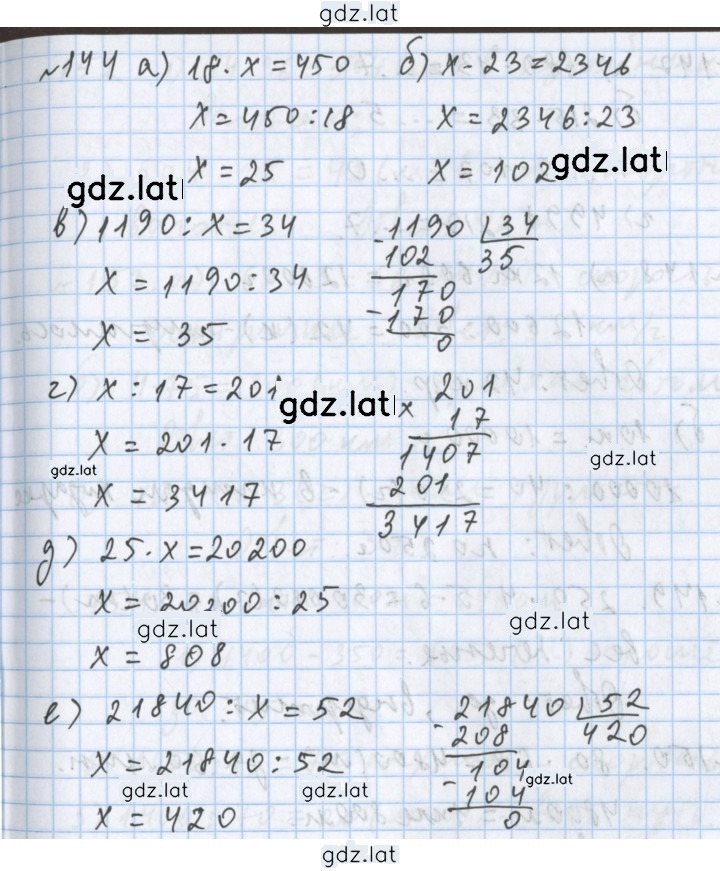 gdz.lat
№144 а) 18·x=450 б) x·23=2346
x=450:18 x=2346:23
x=25 x=102
gdz.lat gdz.lat
в) 1190:x=34
x=1190:34
x=35
-1190 34
102 35
170
-170
0
г) x:17=201
x=201·17
x=3417
gdz.lat
201
× 17
1407
201
3417
gdz.lat gdz.lat
д) 25·x=20200
x=20200:25
x=808
gdz.lat gdz.lat
е) 21840:x=52
x=21840:52
x=420
-21840 52
208 420
104
-104
0
gdz.lat gdz.lat gdz.lat
gdz.lat